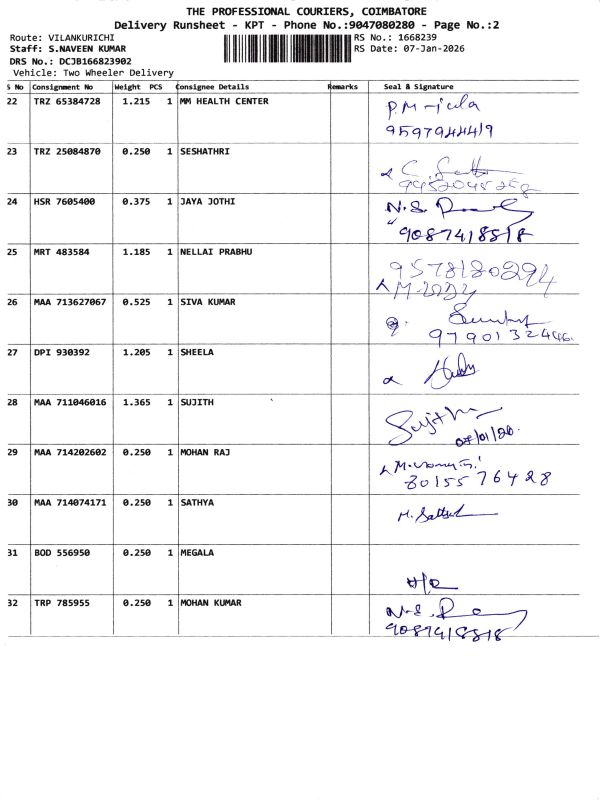 THE PROFESSIONAL COURIERS, COIMBATORE
Delivery Runsheet - KPT - Phone No.:9047080280 - Page No.:2
Route: VILANKURICHI
RS No.: 1668239
Staff: S.NAVEEN KUMAR
RS Date: 07-Jan-2026
DRS No.: DCJB166823902
Vehicle: Two Wheeler Delivery
S No Consignment No Weight PCS Consignee Details Remarks Seal & Signature
22 TRZ 65384728 1.215 1 MM HEALTH CENTER
9597944419
23 TRZ 25084870 0.250 1 SESHATHRI
24 HSR 7605400 0.375 1 JAYA JOTHI N.S.
9087418818
25 MRT 483584 1.185 1 NELLAI PRABHU 9578180294
26 MAA 713627067 0.525 1 SIVA KUMAR
27 DPI 930392 1.205 1 SHEELA
28 MAA 711046016 1.365 1 SUJITH Sujith
07/01/26.
29 MAA 714202602 0.250 1 MOHAN RAJ
8015576428
30 MAA 714074171 0.250 1 SATHYA
31 BOD 556950 0.250 1 MEGALA
H/R
32 TRP 785955 0.250 1 MOHAN KUMAR N.S.
9087418818